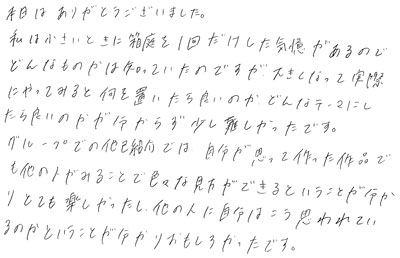 本日はありがとうございました。
私は小さいときに箱庭を1回だけした気憶があるので
どんなものかは知っていたのですが、大きくなって実際
にやってみると何を置いたら良いのか、どんなテーマにし
たら良いのかが分からず少し難しかったです。
グループでの他己紹介では、自分が思って作った作品で
も他の人がみることで色々な見方ができるということが分か
りとても楽しかったし、他の人に自分はこう思われてい
るのかということが分かりおもしろかったです。